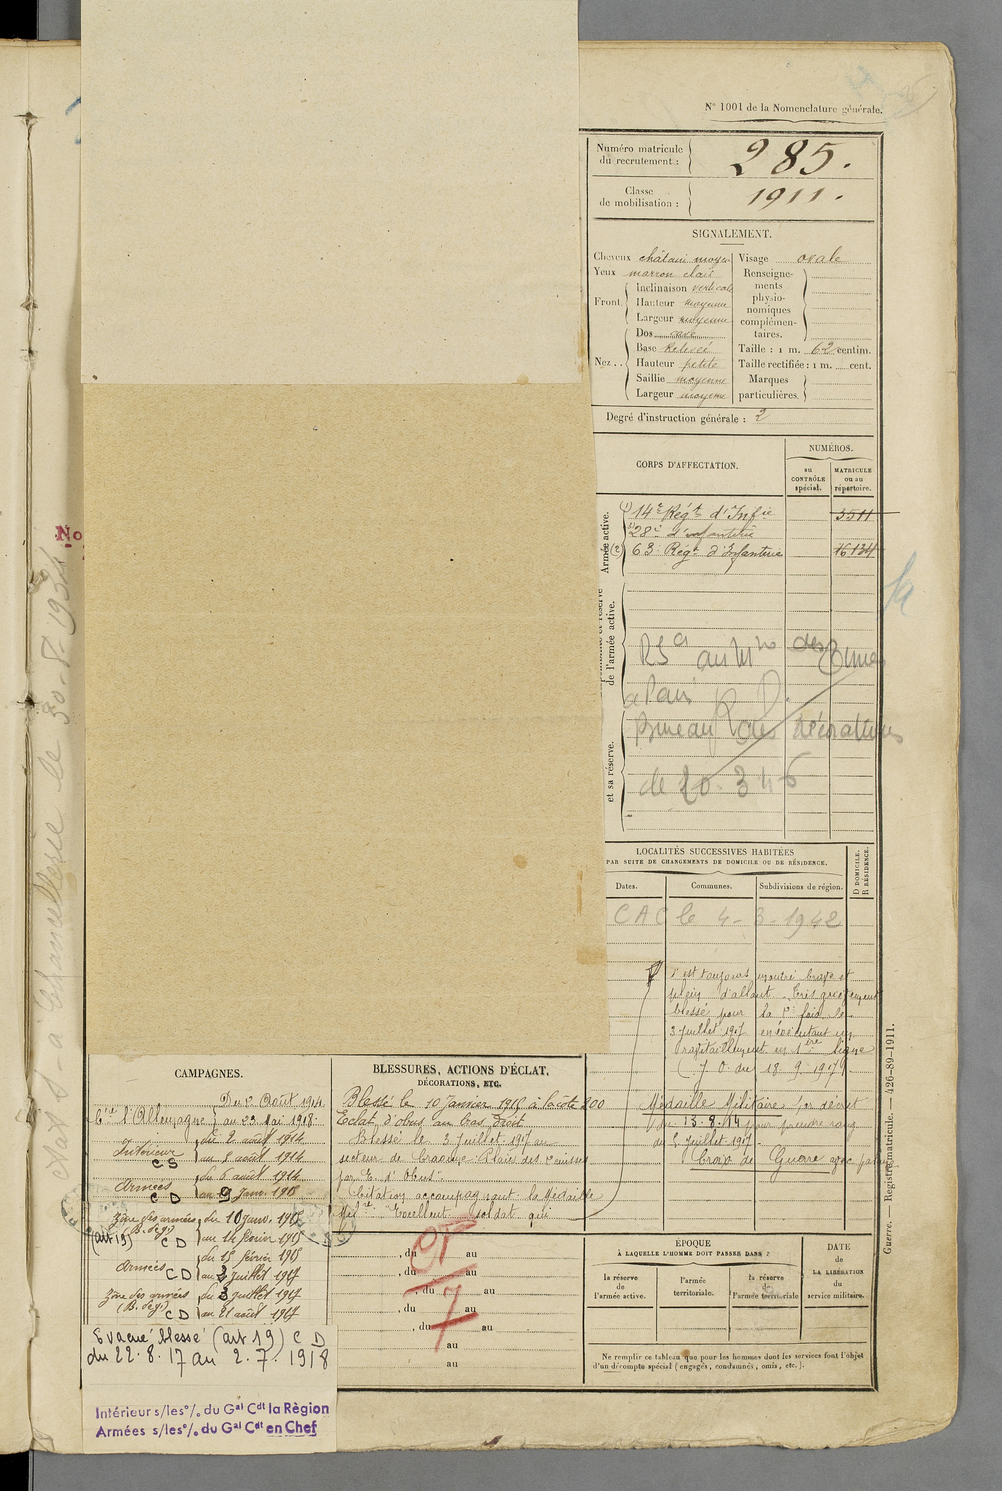 N° 1001 de la Nomenclature générale.
Numéro matricule du recrutement : 285.
Classe de mobilisation : 1911.
SIGNALEMENT.
Cheveux châtain moyen
Yeux marron clair
Front
Inclinaison verticale
Hauteur moyenne
Largeur moyenne
Nez ..
Dos cave
Base Relevée
Hauteur petite
Saillie moyenne
Largeur moyenne
Visage ovale
Renseigne-
ments
physio-
nomiques
complémen-
taires.
Taille : 1 m. 62 centim.
Taille rectifiée : 1 m. cent.
Marques
particulières.
Degré d'instruction générale : 2
CORPS D'AFFECTATION.
NUMÉROS.
au
CONTRÔLE
spécial.
MATRICULE
ou au
répertoire.
Armée active.
(1) 14e Régt d'Infie 3511
28e d'infanterie
(2) 63e Régt d'Infanterie 16134
de l'armée active.
et sa réserve.
à Paris
Bureau des Décorations
de 20.3.46
LOCALITÉS SUCCESSIVES HABITÉES
PAR SUITE DE CHANGEMENTS DE DOMICILE OU DE RÉSIDENCE.
D DOMICILE.
R RÉSIDENCE.
Dates.
Communes.
Subdivisions de région.
CAC le 4-3-1942
s'est toujours montré brave et
plein d'allant. Très grièvement
blessé pour la 2e fois le
3 Juillet 1917 en exécutant un
ravitaillement en 1ère ligne
(J.O. du 18.9.1917)
Médaille Militaire par décret
du 13.8.17 pour prendre rang
du 5 Juillet 1917.
Croix de Guerre avec palme
CAMPAGNES.
Du 2 Août 1914
au 23 Mai 1918
Intérieur
CS
du 2 août 1914
au 5 août 1914
Armées
CD
du 6 août 1914
au 9 Janv. 1915
Zône des armées
(B. de g.)
(art 19) CD
du 10 janv. 1915
au 14 février 1915
Armées
CD
du 15 février 1915
au 2 juillet 1917
Zône des armées
(B. de g.)
CD
du 3 juillet 1917
au 21 août 1917
Evacué blessé (art 19) C D
du 22.8.17 au 2.7.1918
Intérieur s/les o/o du Gal Cdt la Région
Armées s/les o/o du Gal Cdt en Chef
BLESSURES, ACTIONS D'ÉCLAT,
DÉCORATIONS, ETC.
Blessé le 10 Janvier 1915 à la côte 200
Eclat d'obus au bras droit
Blessé le 3 Juillet 1917 au
secteur de Craonne
par E. d'Obus.
Citation accompagnant la Médaille
Milre Excellent soldat qui
, du au
, du au
, du au
, du au
, du au
au
au
ÉPOQUE
À LAQUELLE L'HOMME DOIT PASSER DANS :
la réserve
de
l'armée active.
l'armée
territoriale.
la réserve
de
l'armée territoriale
DATE
de
LA LIBÉRATION
du
service militaire.
Ne remplir ce tableau que pour les hommes dont les services font l'objet
d'un décompte spécial (engagés, condamnés, omis, etc.).
Guerre. — Registre matricule. — 426-89-1911.
No